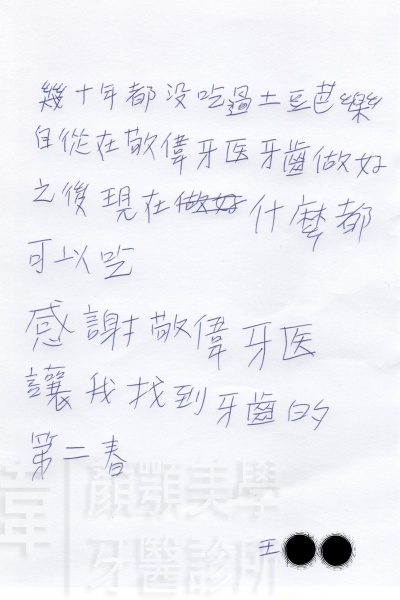 幾十年都没吃過土豆芭樂
自從在敬偉牙医牙齒做好
之後現在做好什麼都
可以吃
感謝敬偉牙医
讓我找到牙齒的
第二春
王
韋 顏顎美學
牙醫診所